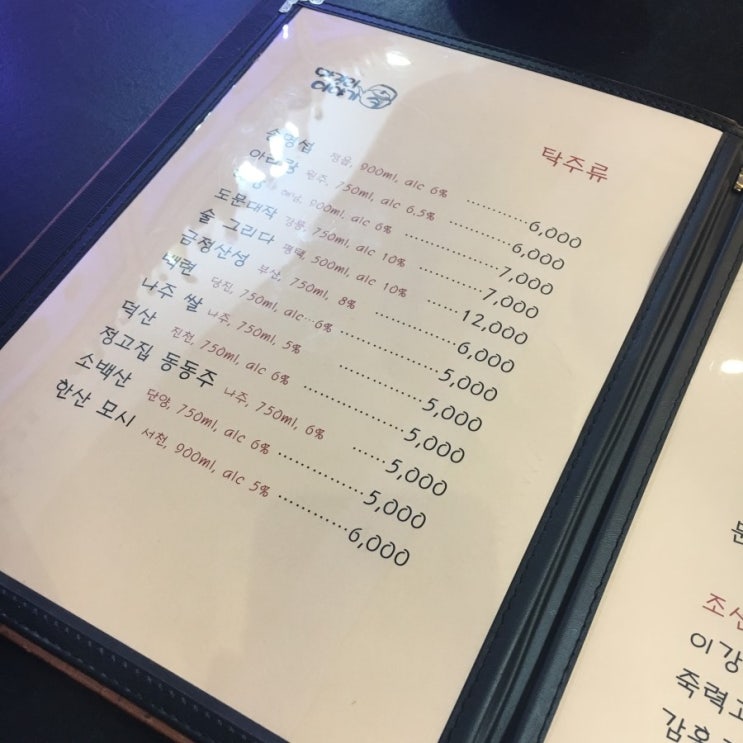 탁주류
송명섭 정읍, 900ml, alc 6% ............ 6,000
아리랑 원주, 750ml, alc 6.5% ............ 6,000
해남, 900ml, alc 6% ............ 7,000
도문대작 강릉, 750ml, alc 10% ............ 7,000
술 그리다 평택, 500ml, alc 10% ...... 12,000
금정산성 부산, 750ml, 8% ............ 6,000
백련 당진, 750ml, alc 6% ............ 5,000
나주 쌀 나주, 750ml, 5% ............ 5,000
덕산 진천, 750ml, alc 6% ............ 5,000
정고집 동동주 나주, 750ml, 6% ...... 5,000
소백산 단양, 750ml, alc 6% ............ 5,000
한산 모시 서천, 900ml, alc 5% ............ 6,000
이강
죽력고
감홍